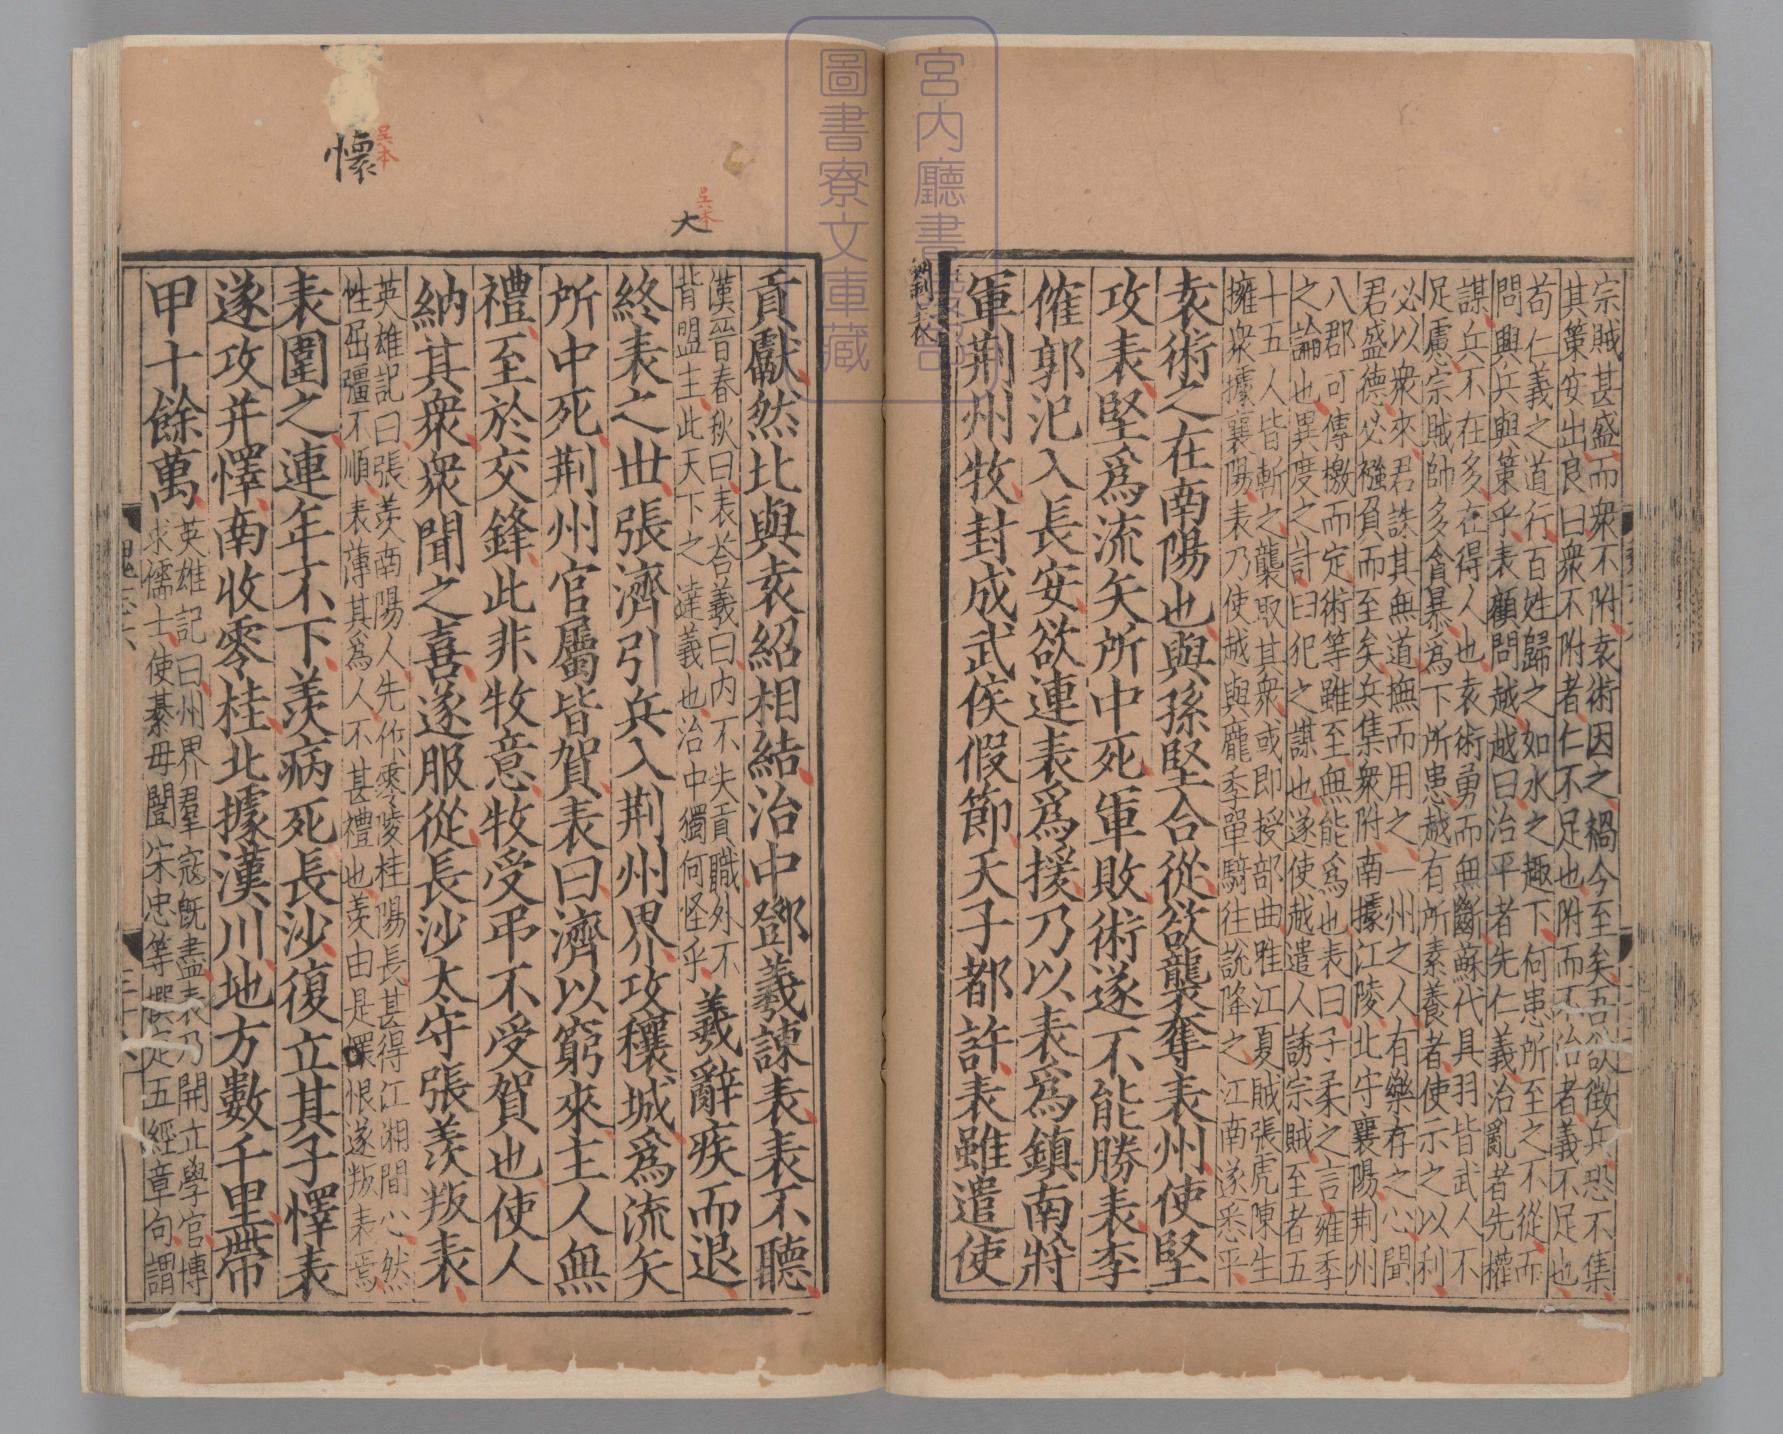 宗賊甚盛而衆不附袁術因之禍今至矣吾欲徵兵恐不集
其策安出良曰衆不附者仁不足也附而不治者義不足也
苟仁義之道行百姓歸之如水之趣下何患所至之不從而
問興兵與策乎表顧問越越曰治平者先仁義治亂者先權
謀兵不在多在得人也袁術勇而無斷蘇代具羽皆武人不
足慮宗賊帥多貪暴爲下所患越有所素養者使示之以利
必以衆來君誅其無道撫而用之一州之人有樂存之心聞
君盛德必襁負而至矣兵集衆附南據江陵北守襄陽荆州
八郡可傳檄而定術等雖至無能爲也表曰子柔之言雍季
之論也異度之計臼犯之謀也遂使越遣人誘宗賊至者五
十五人皆斬之襲取其衆或即授部曲唯江夏賊張虎陳生
擁衆據襄陽表乃使越與龐季單騎往說降之江南遂悉平
袁術之在南陽也與孫堅合從欲襲奪表州使堅
攻表堅爲流矢所中死軍敗術遂不能勝表李
傕郭汜入長安欲連表爲援乃以表爲鎮南將
軍荆州牧封成武侯假節天子都許表雖遣使
劉表
宮内廳書
圖書寮文庫藏
吳本
大
吳本
懷
貢獻然北與袁紹相結治中鄧羲諫表表不聽
漢晉春秋曰表荅羲曰内不失貢職外不
背盟主此天下之達義也治中獨何怪乎羲辭疾而退
終表之世張濟引兵入荆州界攻穰城爲流矢
所中死荆州官屬皆賀表曰濟以窮來主人無
禮至於交鋒此非牧意牧受弔不受賀也使人
納其衆衆聞之喜遂服從長沙太守張羨叛表
英雄記曰張羨南陽人先作零陵桂陽長甚得江湘間心然
性屈彊不順表薄其爲人不甚禮也羨由是懷恨遂叛表焉
表圍之連年不下羨病死長沙復立其子懌表
遂攻并懌南收零桂北據漢川地方數千里帶
甲十餘萬
英雄記曰州界羣寇旣盡表乃開立學官博
求儒士使綦毋闓宋忠等譔定五經章句謂